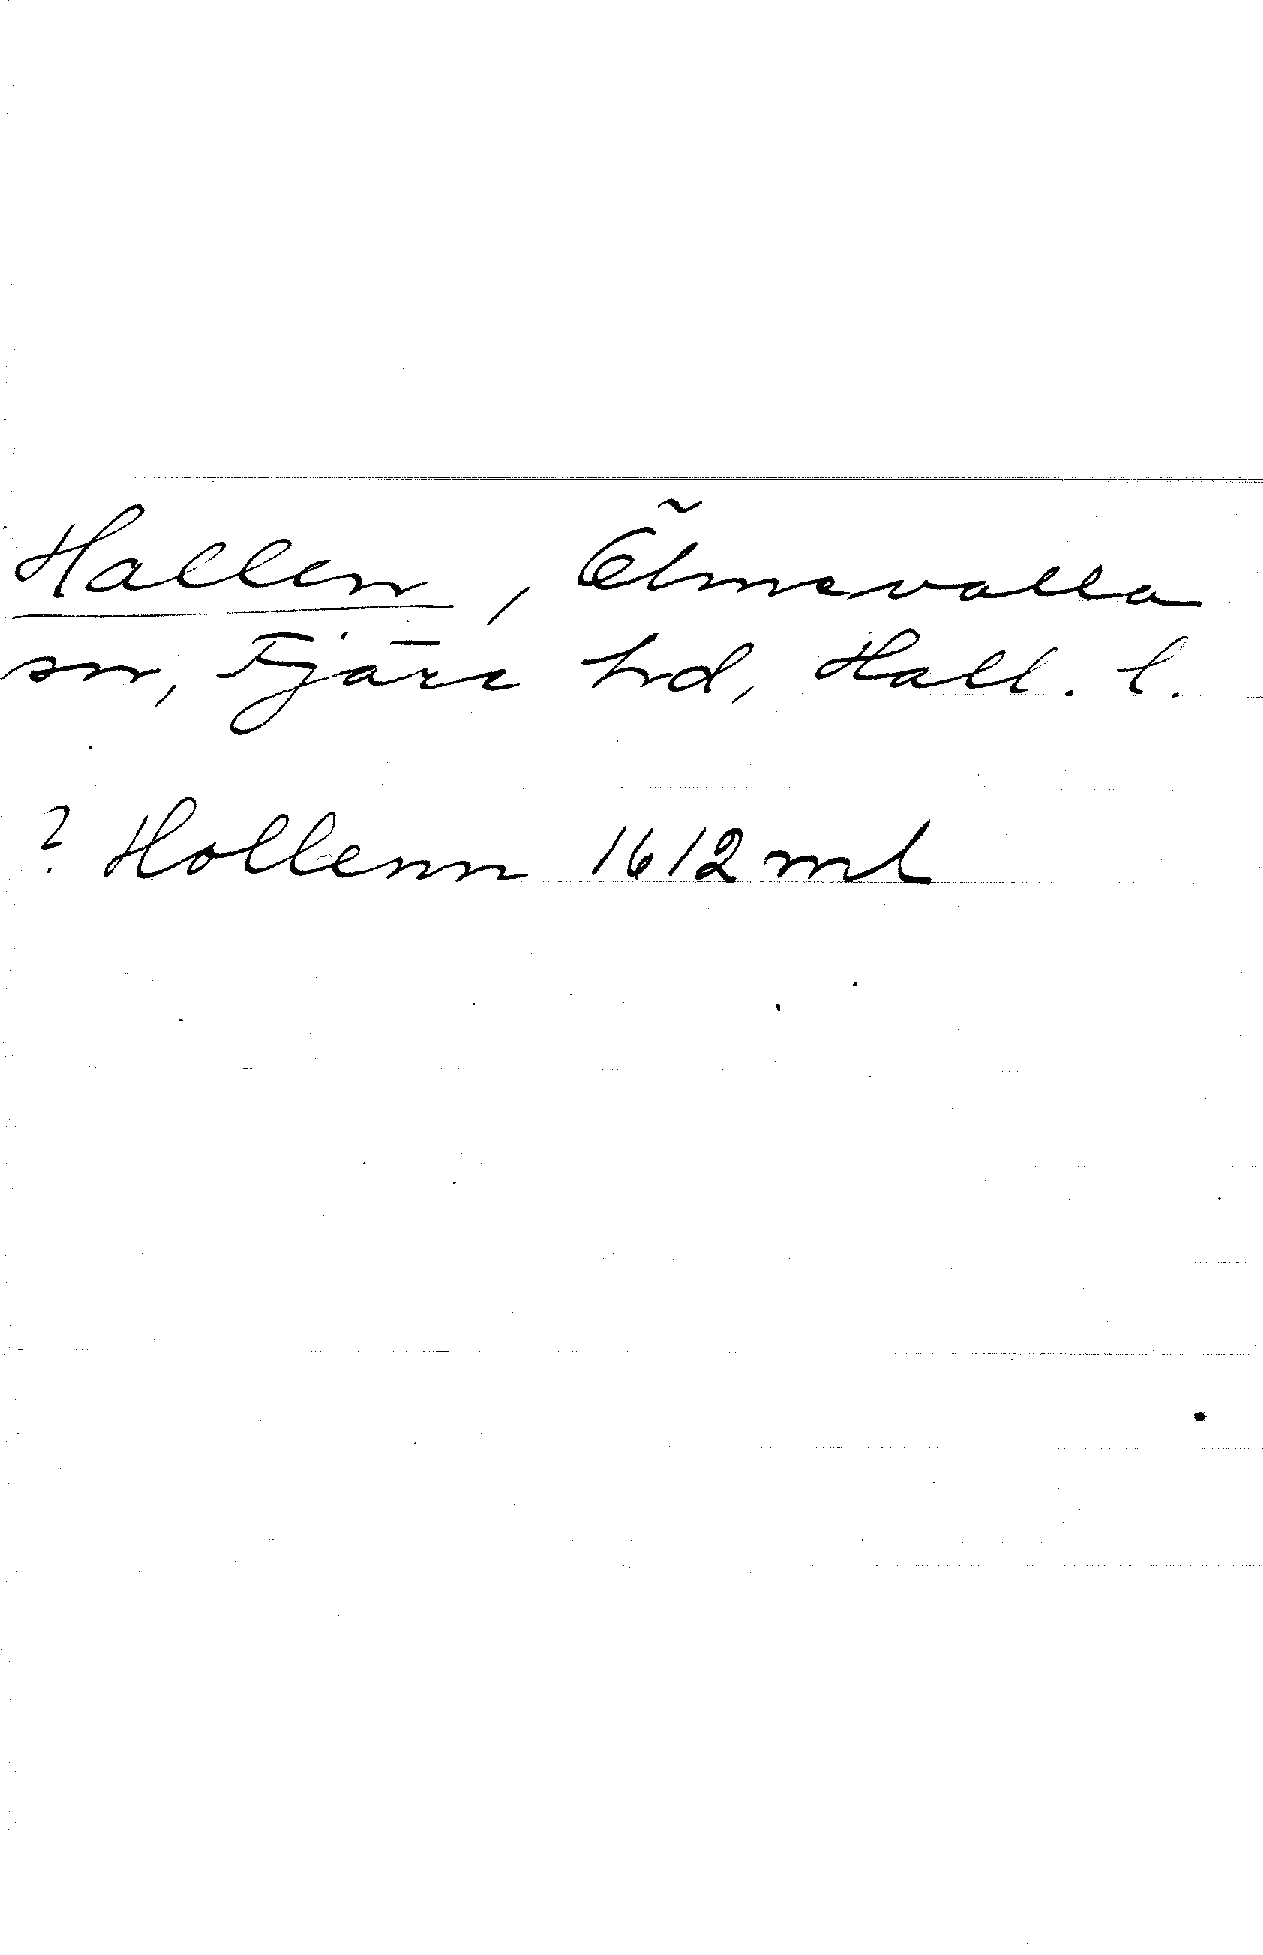 Hallen, Ölmevalla
sn, Fjäre hd, Hall. l.
? Hollenn 1612 ml